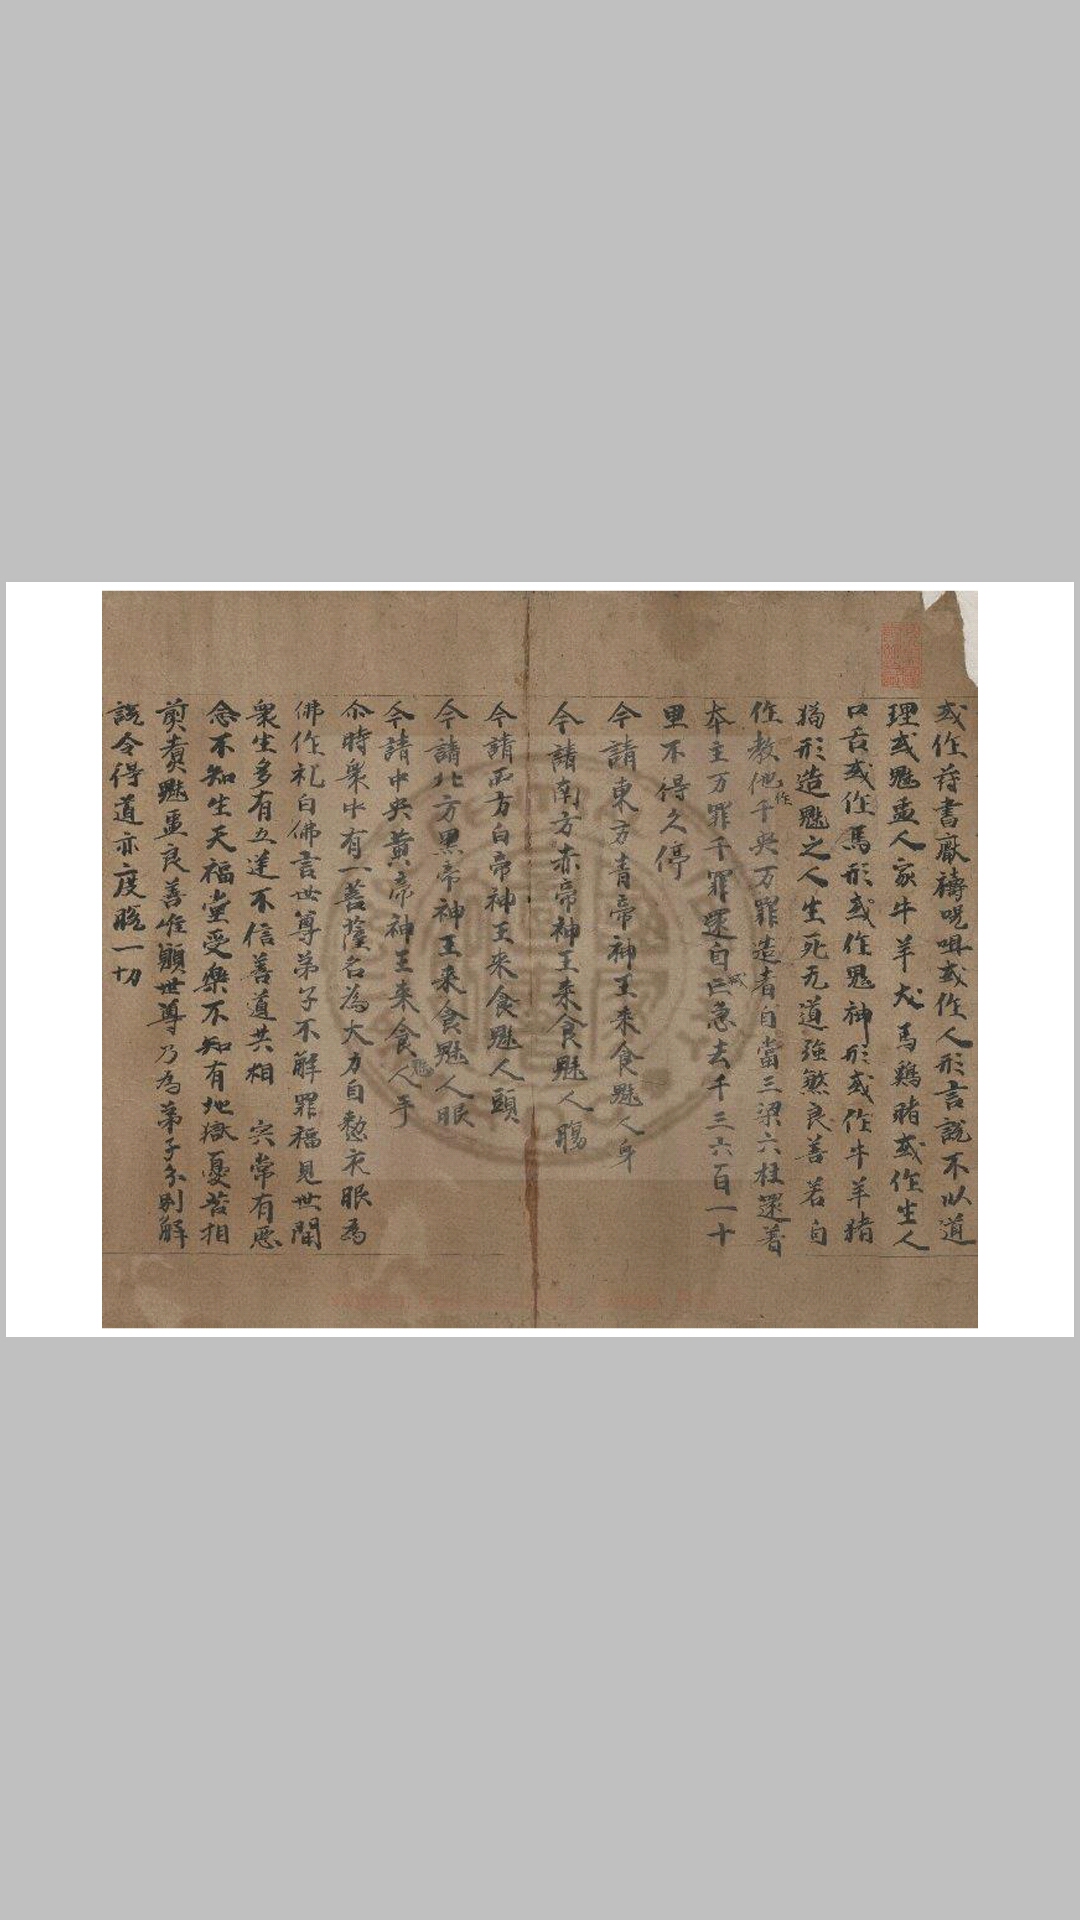 或作符書厭禱呪咀或作人形言說不以道
理或魅蠱人家牛羊犬馬鷄猪或作生人
口舌或作馬形或作鬼神形或作牛羊猪
猫形造魅之人生死无道強煞良善若自
作教他作千央万罪造者自當三梁六柱還着
本主万罪千罪還自亡滅急去千三六百一十
里不得久停
今請東方青帝神王来食魅人身
今請南方赤帝神王来食魅人膓
今請西方白帝神王来食魅人頭
今請北方黑帝神王来食魅人眼
今請中央黃帝神王来食魅人手
尒時衆中有一菩薩名為大力自懃夜眠為
佛作礼白佛言世尊弟子不解罪福見世間
衆生多有五逆不信善道共相 常有惡
念不知生天福堂受樂不知有地獄憂苦相
煎煑魅蠱良善惟願世尊乃為弟子分別解
說令得道亦度脫一切